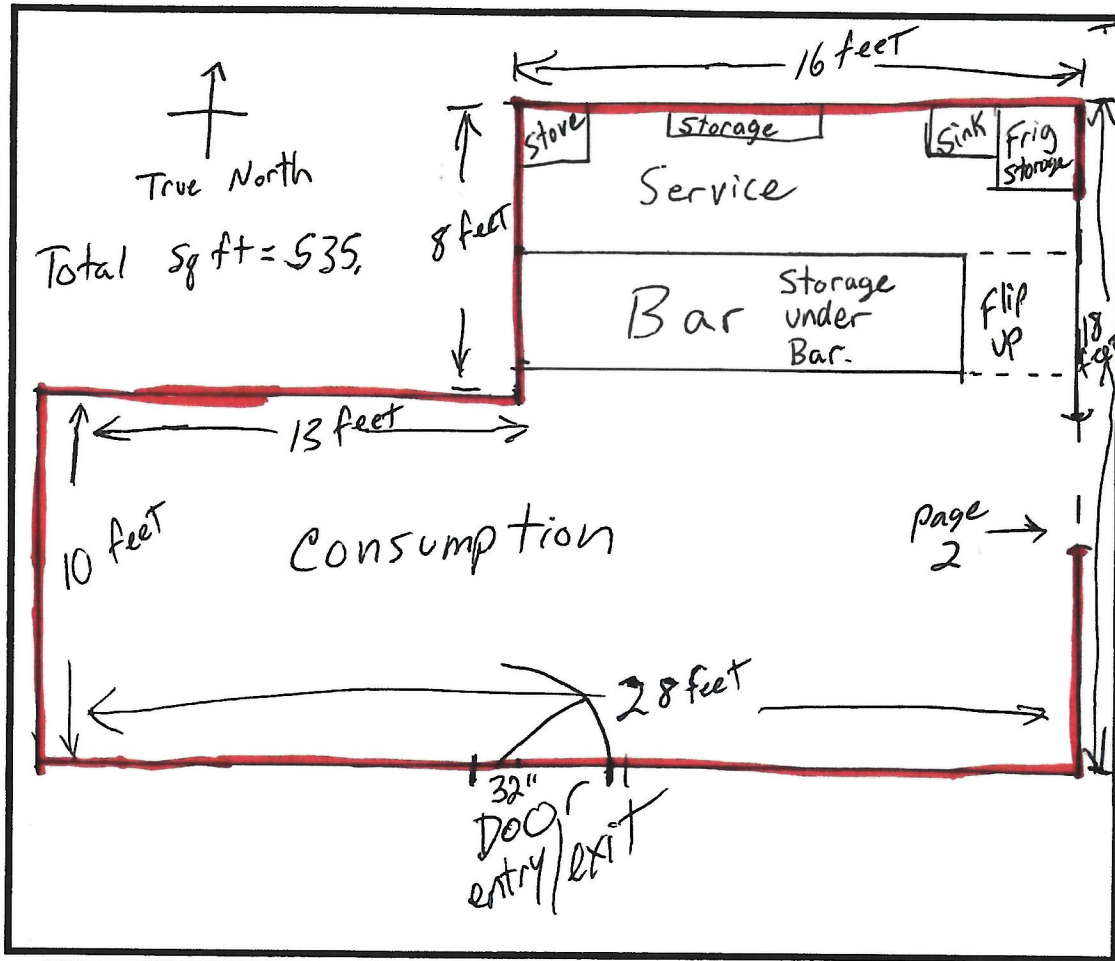 16 feet
True North
Total Sq ft = 535.
8 feet
Stove
Storage
Sink
Frig
Storage
Service
Bar
Storage
under
Bar.
Flip
up
18
feet
13 feet
10 feet
Consumption
page
2
28 feet
32"
Door
entry/exit